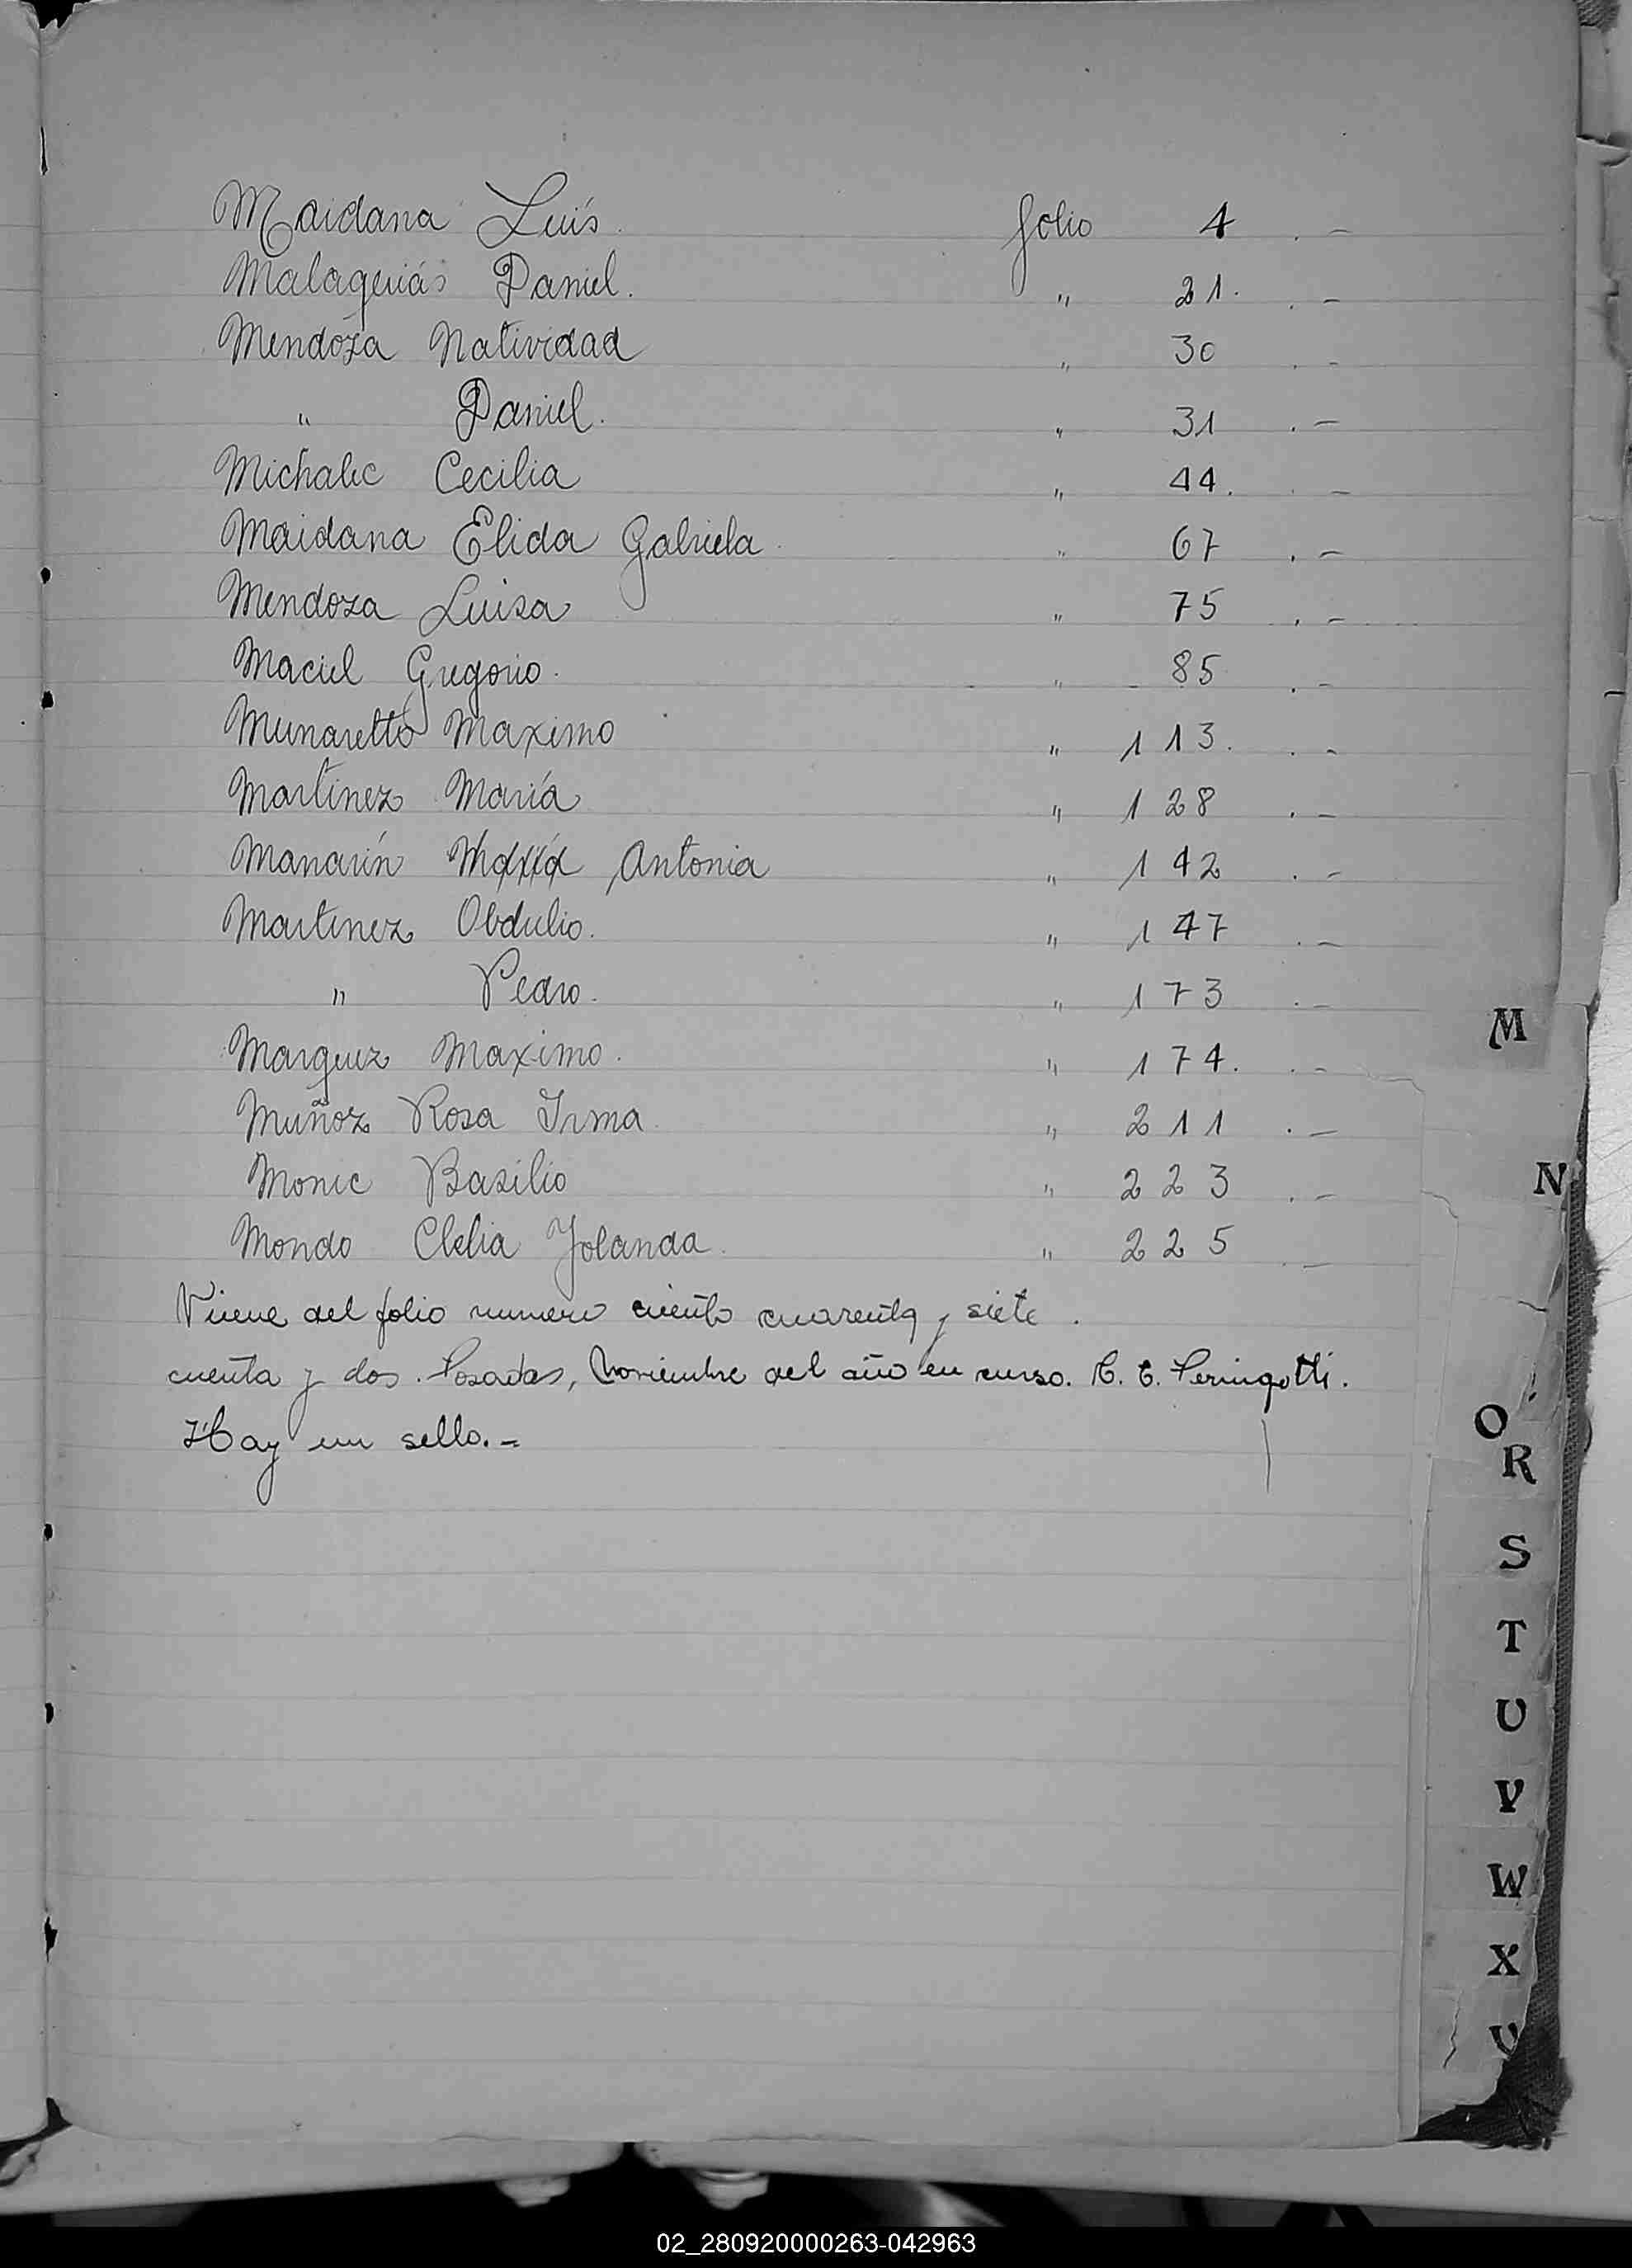 Maidana Luís. folio 4 . -
Malaquiás Daniel. " 21. . -
Mendoza Natividad " 30 . -
" Daniel. " 31 . -
Michalec Cecilia " 44. . -
Maidana Elida Gabriela " 67 . -
Mendoza Luisa " 75 . -
Maciel Gregorio. " 85 . -
Munaretto Maximo " 113. . -
Martinez María " 128 . -
Manarín María Antonia " 142 . -
Martinez Obdulio. " 147 . -
" Pedro. " 173 . -
Marquez Maximo. " 174. . -
Muñoz Rosa Irma " 211 . -
Monic Basilio " 223 . -
Mondo Clelia Yolanda. " 225 . -
Viene del folio numero ciento cuarenta y siete.
cuenta y dos. Posadas, Noviembre del año en curso. C. E. Peringotti.
Hay un sello. -
M
N
O
R
S
T
U
V
W
X
02_280920000263-042963